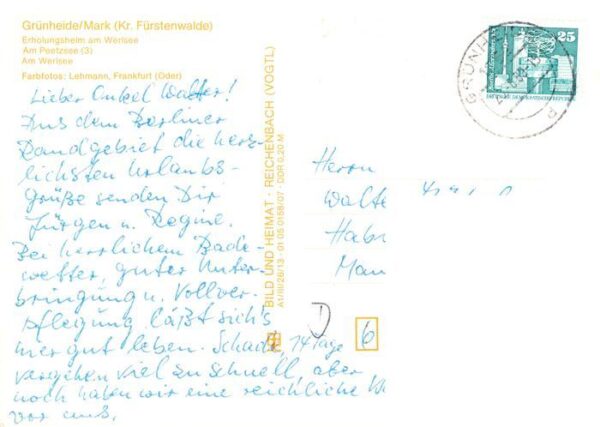 Grünheide/Mark (Kr. Fürstenwalde)
Erholungsheim am Werlsee
Am Peetzsee (3)
Am Werlsee
Farbfotos: Lehmann, Frankfurt (Oder)
Lieber Onkel Walter!
Aus dem Berliner
Randgebiet die herz-
lichsten Urlaubs-
grüße senden Dir
Jürgen u. Regine.
Bei herrlichem Bade-
wetter, guter Unter-
bringung u. Vollver-
pflegung läßt sich's
hier gut leben. Schade, 14 Tage
vergehen viel zu schnell, aber
noch haben wir eine reichliche
vor uns.
BILD UND HEIMAT · REICHENBACH (VOGTL)
A1/III/26/13 · 01 05 0158/07 · DDR 0,20 M
25
DEUTSCHE DEMOKRATISCHE REPUBLIK
Herrn
Walte
D
6